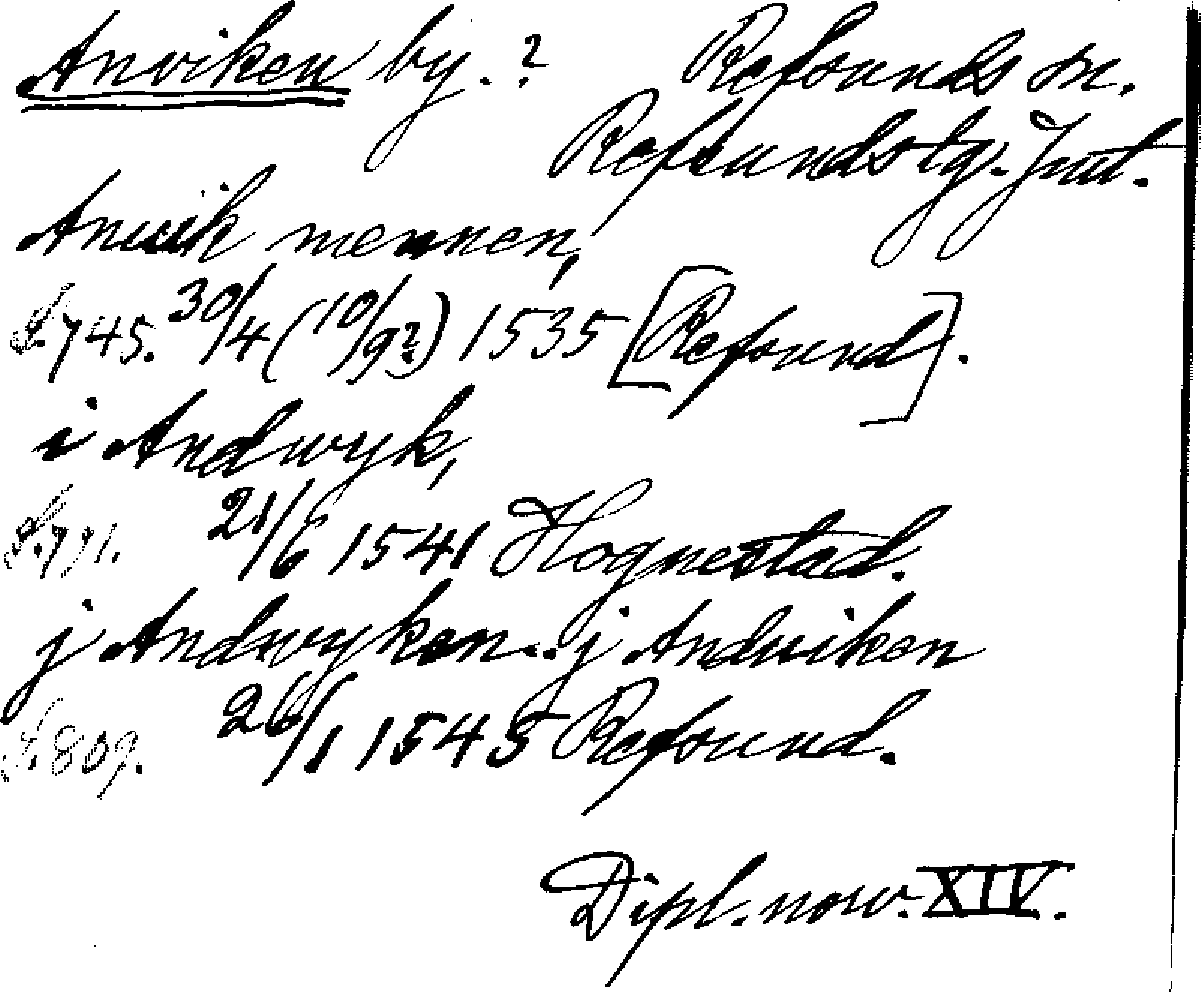 Anviken by. ? Refsunds sn.
Refsunds tg. Jmt.
Anuik mennen,
S. 745. 30/4 (10/9?) 1535 [Refsund].
i Andwyk,
S. 771. 21/6 1541 Hognestad.
j Andwyken .. j Andviken
S. 809. 26/1 1545 Refsund.
Dipl. norv. XIV.